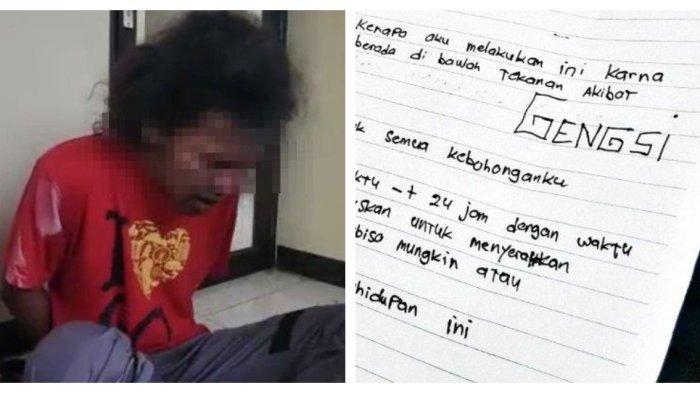 I
Kenapa aku melakukan ini karna
berada di bawah Tekanan Akibat
GENGSI
k semua kebohonganku
ktu -+ 24 jam dengan waktu
uskan untuk menyerahkan
bisa mungkin atau
hidupan ini